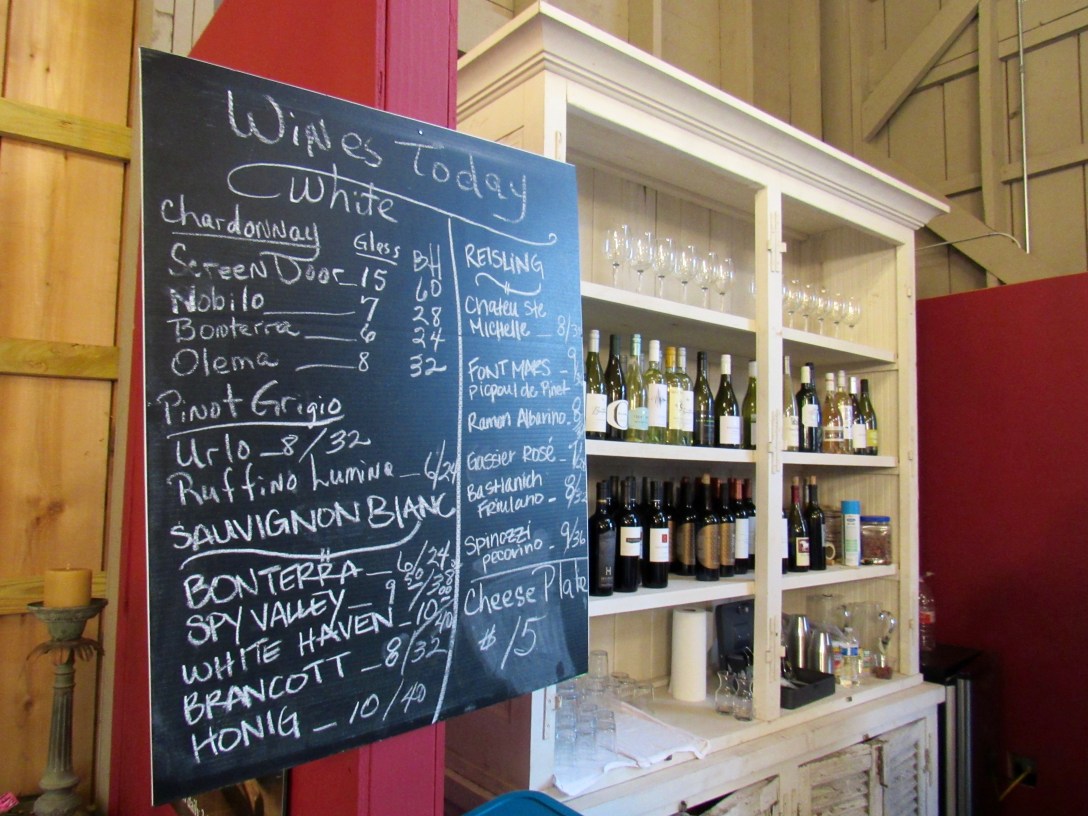 Wines Today
White
Chardonnay Glass BH
Screen Door 15 60
Nobilo 7 28
Bonterra 6 24
Olema 8 32
Pinot Grigio
Urlo - 8/32
Ruffino Lumina - 6/24
SAUVIGNON BlANC
BONTERRA - 6/24
SPY VALLEY - 9
WHITE HAVEN - 10/40
BRANCOTT - 8/32
HONIG - 10/40
REISLING
Chateu Ste
Michelle - 8/
FONT MARS - 9
picpoul de Pinet
Ramon Albarino - 8
Gassier Rosé -
Bastianich
Friulano - 8/32
Spinozzi
pecorino - 9/36
Cheese Plate
$15